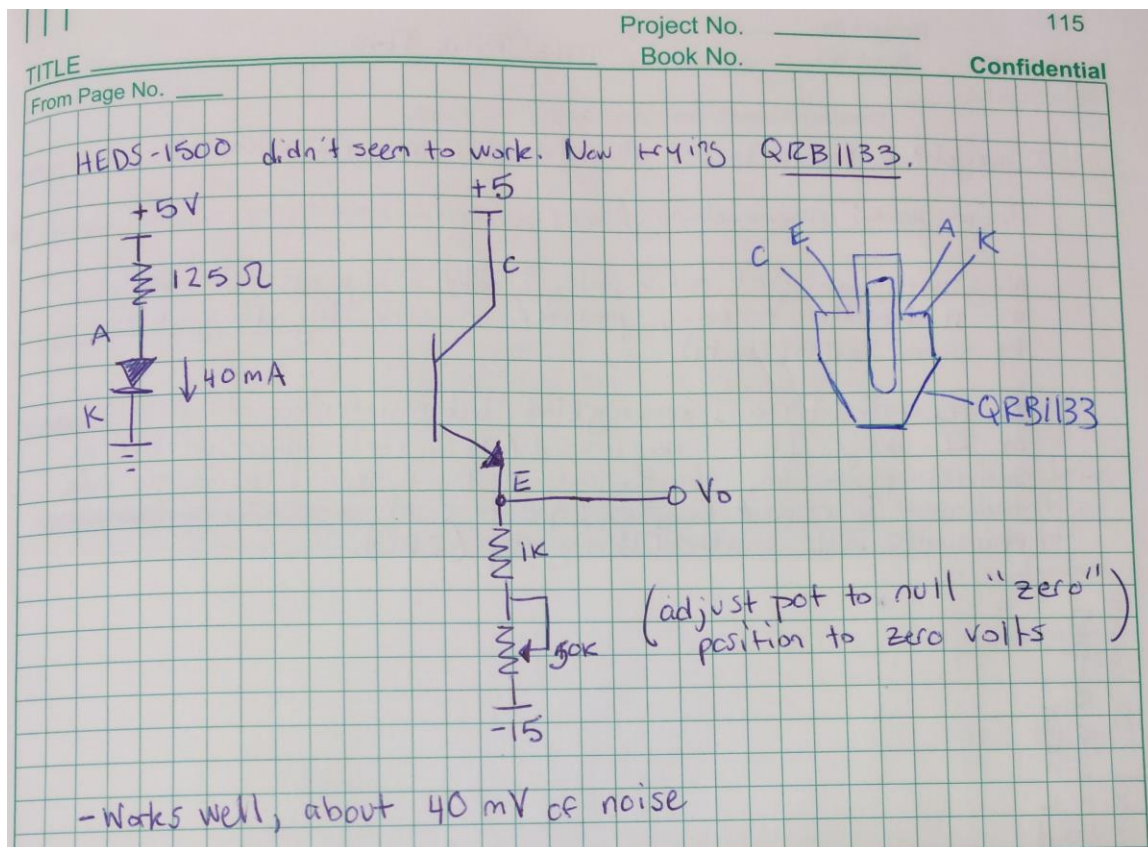 Project No. 115
TITLE Book No. Confidential
From Page No.
HEDS-1500 didn't seem to work. Now trying QRB1133.
+5V
+5
125Ω
A
40mA
K
C
E
Vo
1K
50K
-15
C E A K
QRB1133
(adjust pot to null "zero"
position to zero volts)
-Works well, about 40 mV of noise